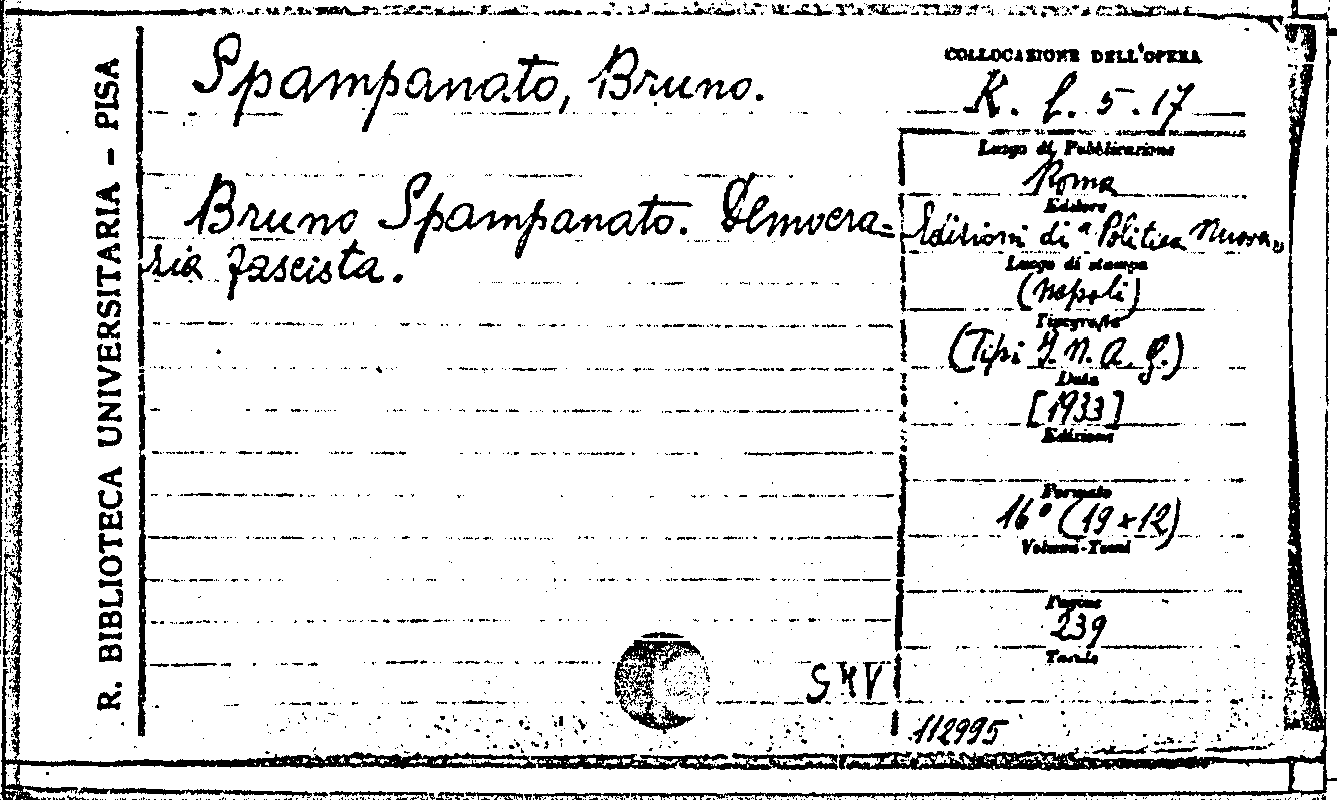 R. BIBLIOTECA UNIVERSITARIA - PISA
Spampanato, Bruno.
Bruno Spampanato. Democra=
zia fascista.
COLLOCAZIONE DELL'OPERA
K. f. 5. 17
Luogo di Pubblicazione
Roma
Editore
Edizioni di "Politica Nuova"
Luogo di stampa
(Napoli)
Tipografia
(Tipi I. N. A. G.)
Data
[1933]
Edizione
Formato
16° (19×12)
Volumi-Tomi
Pagine
239
Tavole
SMV
112995